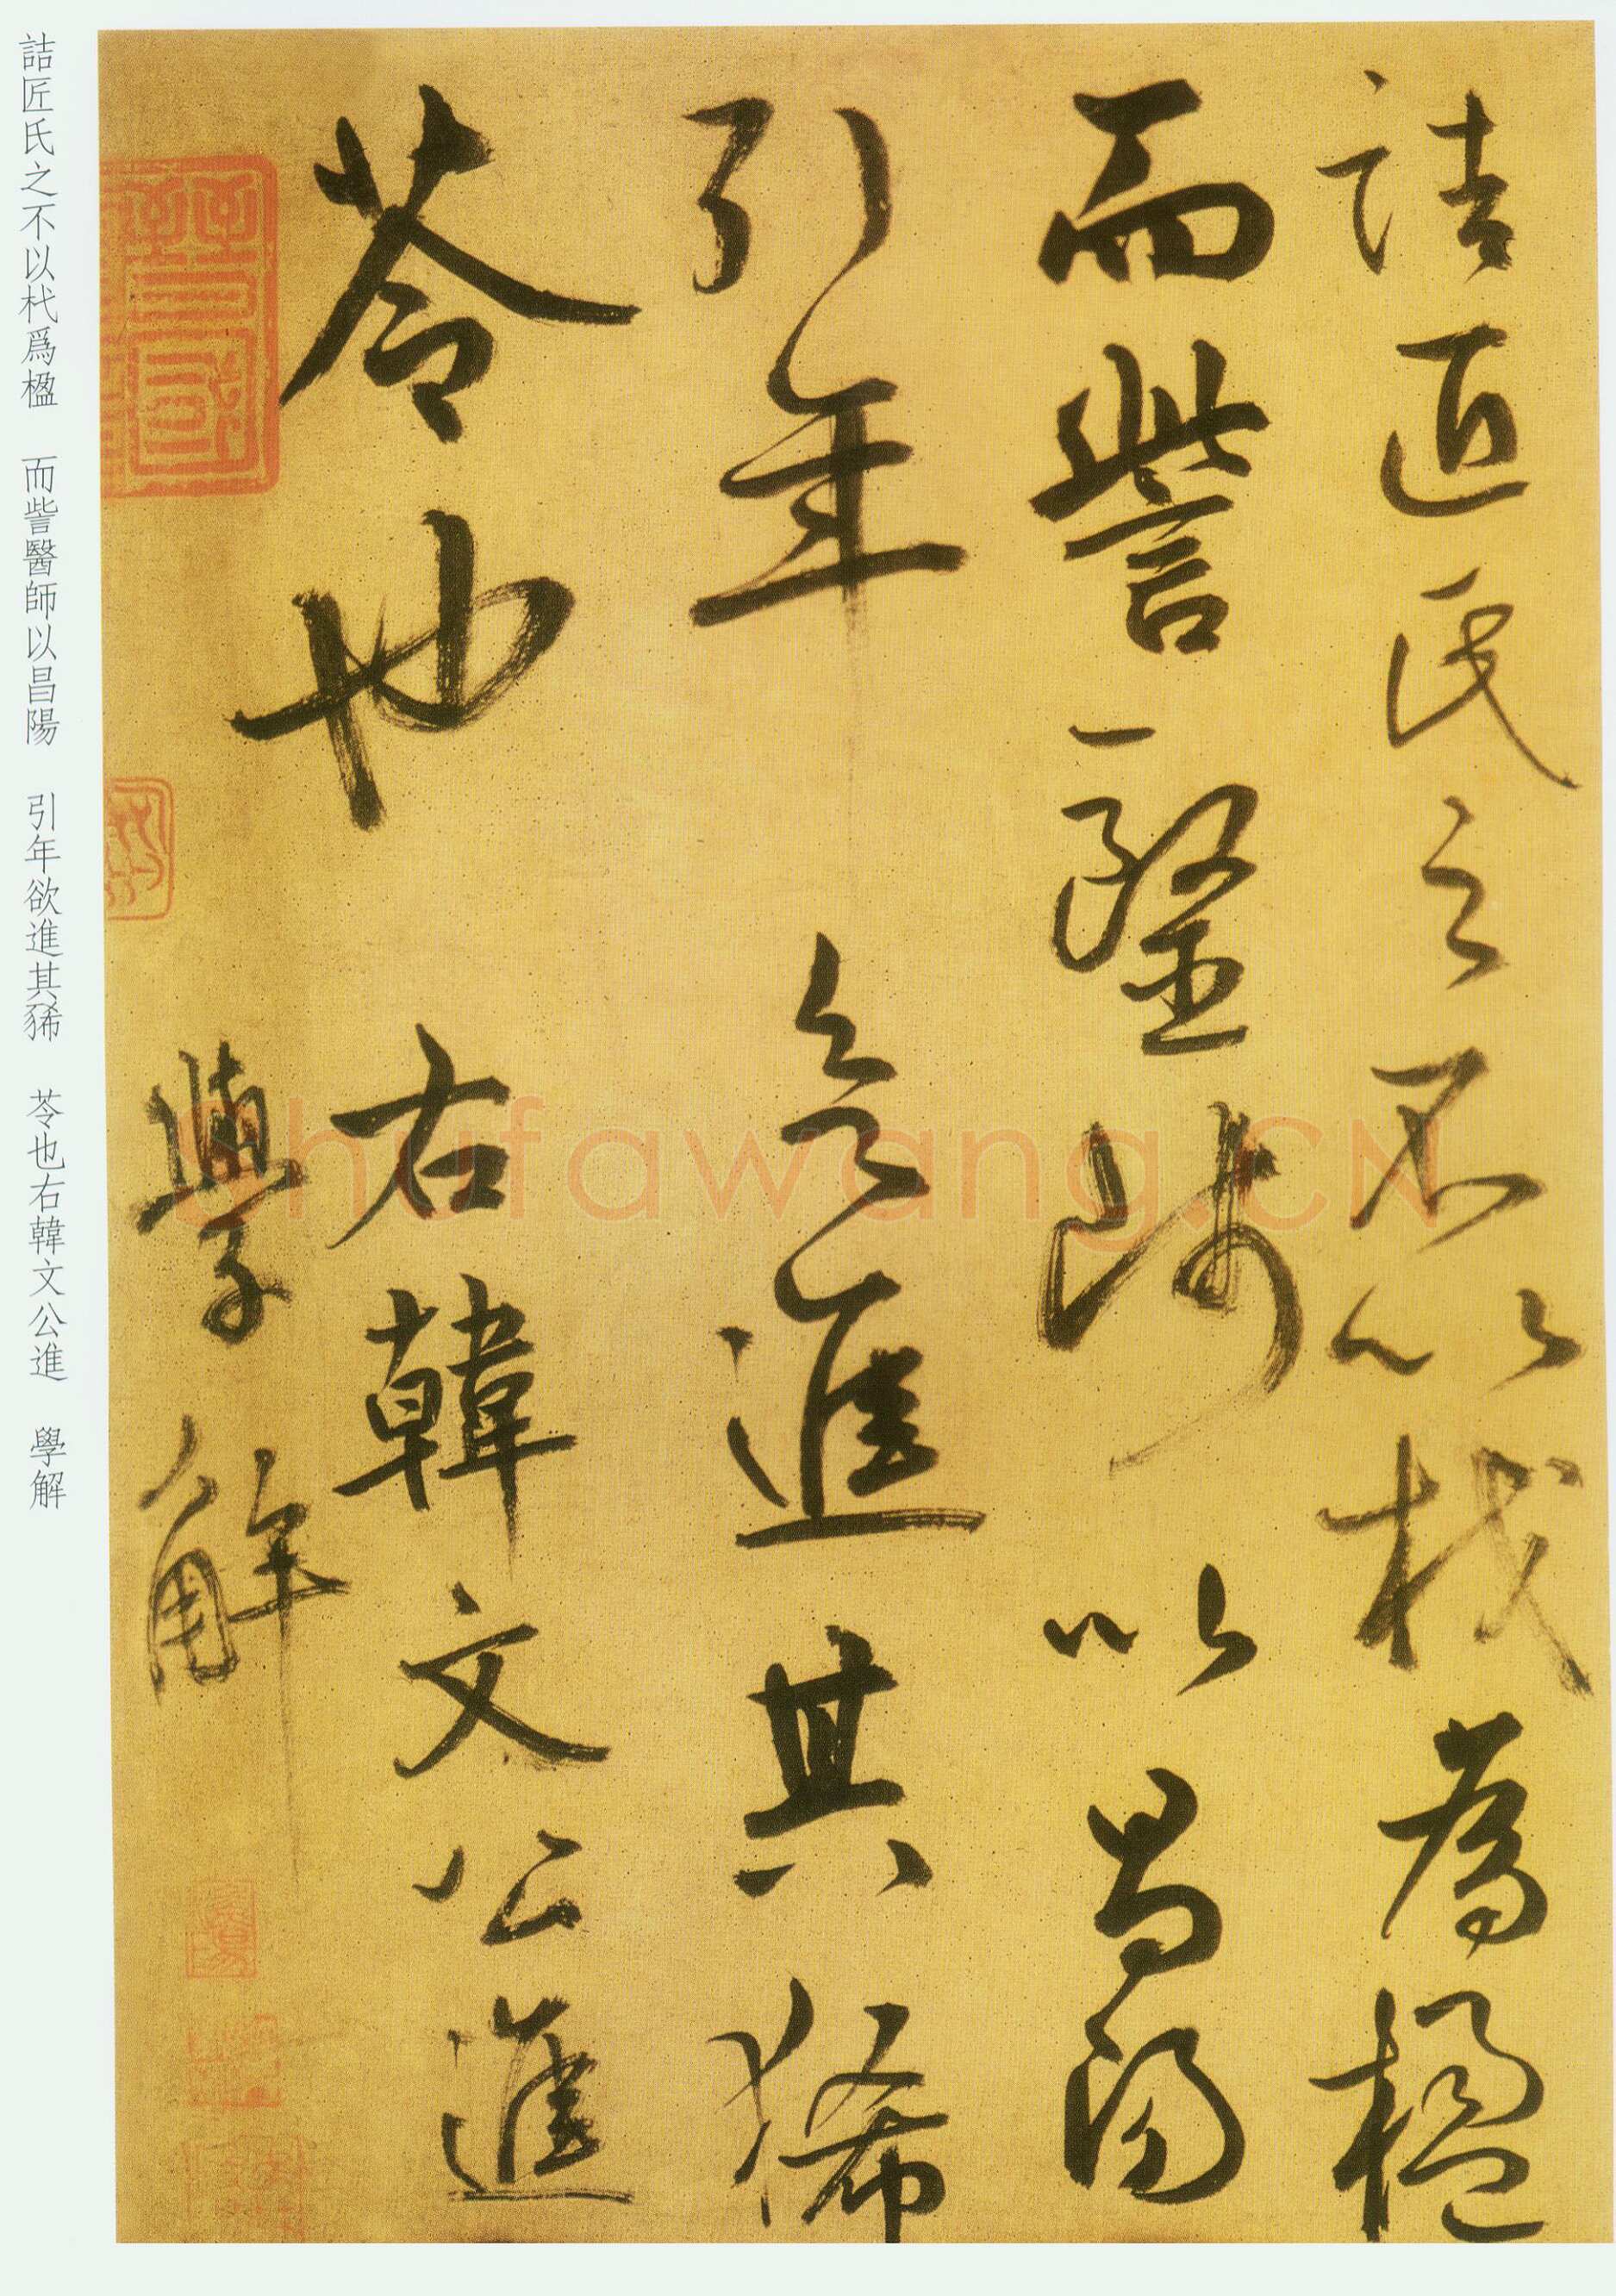 詰匠氏之不以杙爲楹
而訾醫師以昌陽
引年欲進其豨
苓也
右韓文公進
學解
詰匠氏之不以杙爲楹 而訾醫師以昌陽 引年欲進其豨 苓也右韓文公進 學解
shufawang.CN